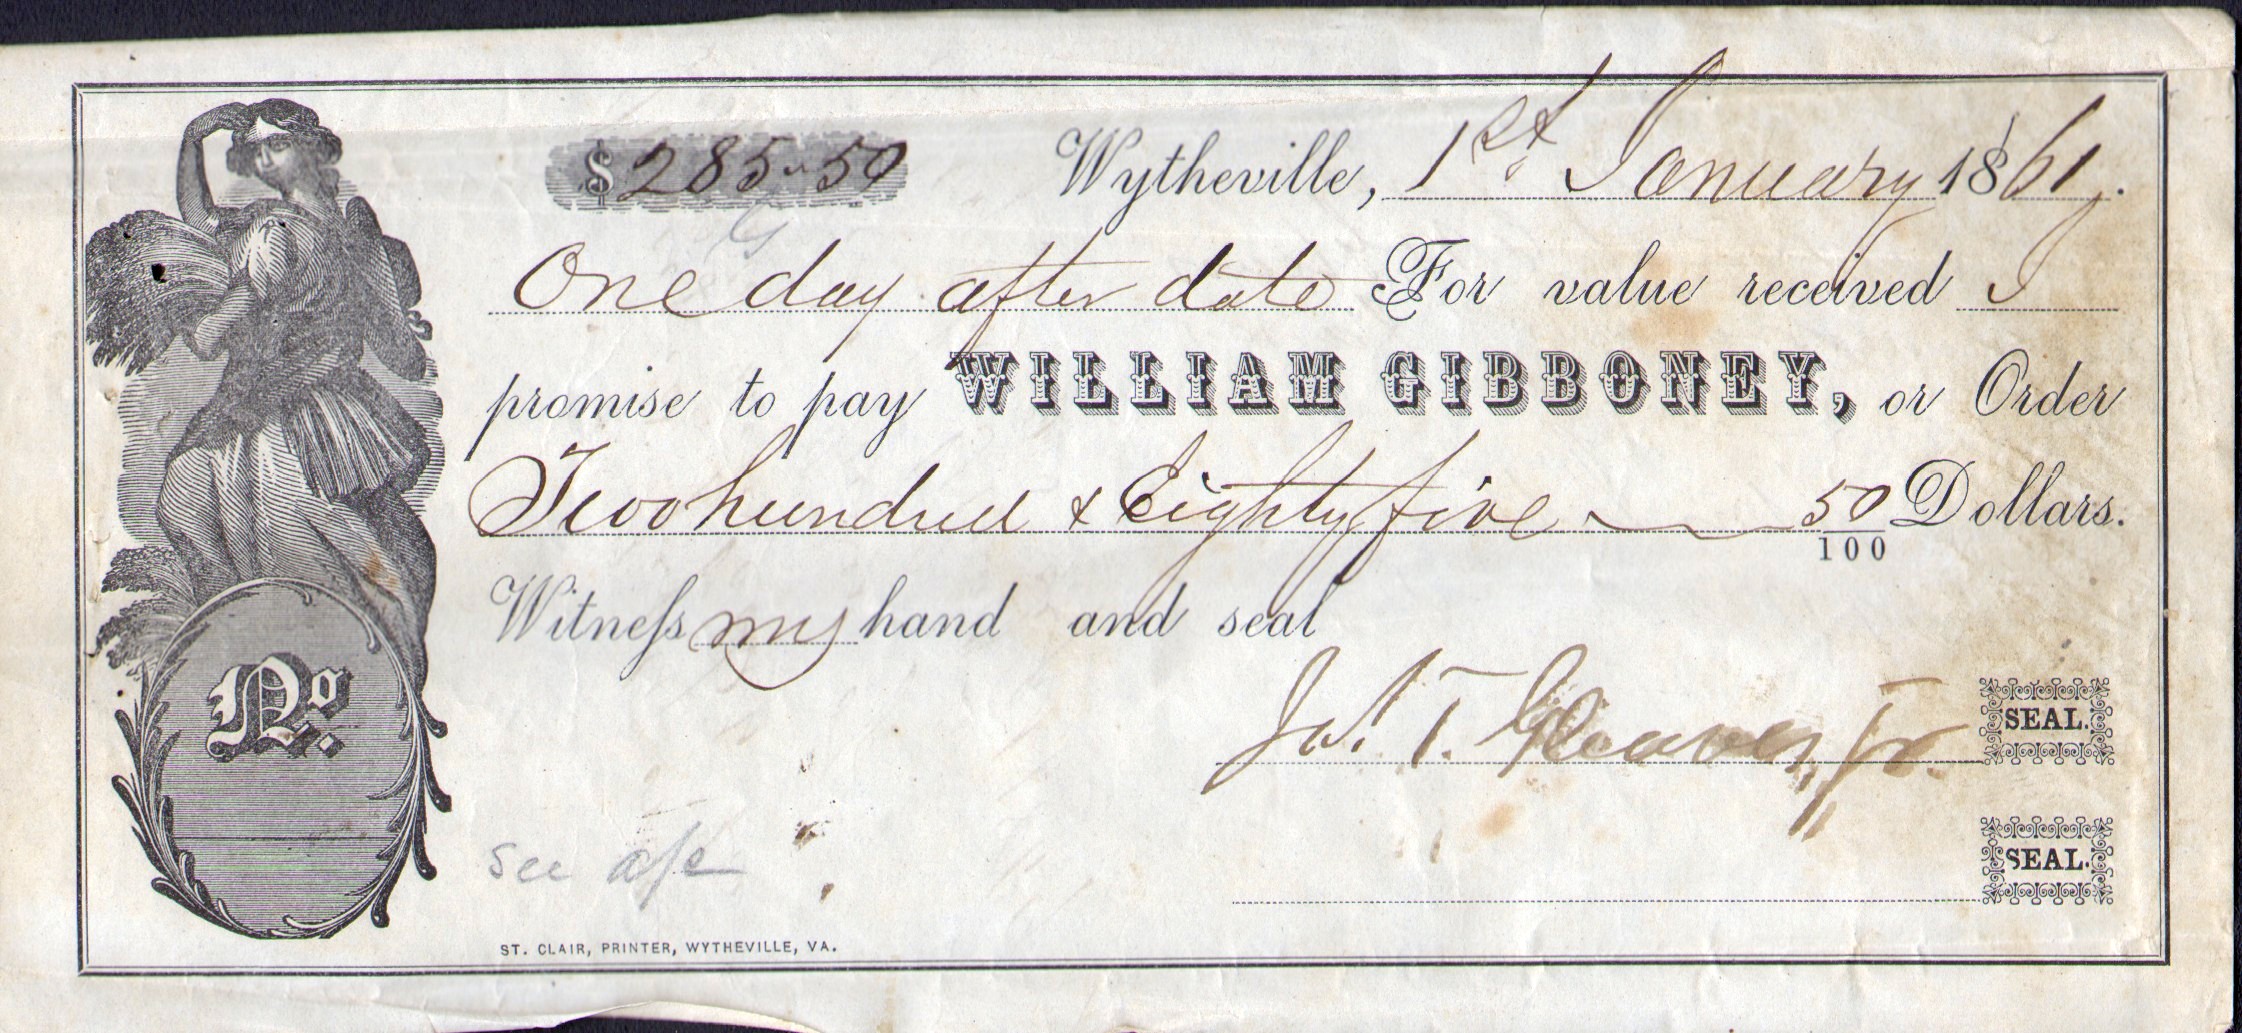 $285.50 Wytheville, 1st January 1861.
One day after date For value received I
promise to pay WILLIAM GIBBONEY, or Order
Two hundred & Eighty five 50/100 Dollars.
Witneſs my hand and seal
Jas. T. Gleaves, Jr. SEAL.
SEAL.
No.
See a/c
ST. CLAIR, PRINTER, WYTHEVILLE, VA.